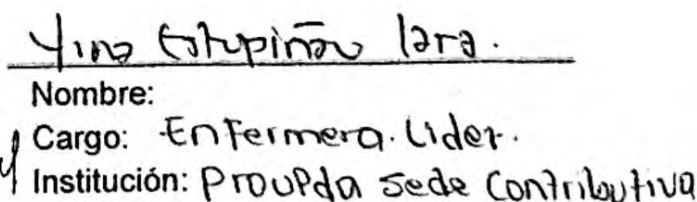 Yina Estupiñan lara.
Nombre:
Cargo: Enfermera. Lider.
Institución: Proupda Sede Contributiva